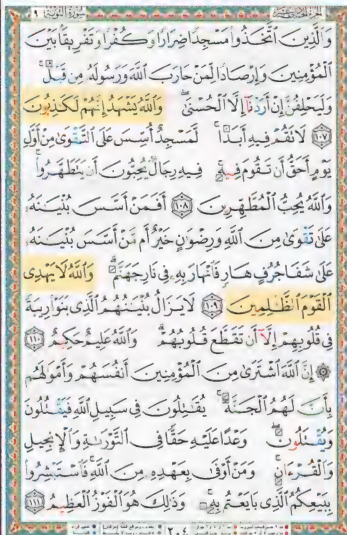 الجزء الحادي عشر سورة التوبة ٩
وَالَّذِينَ اتَّخَذُوا مَسْجِدًا ضِرَارًا وَكُفْرًا وَتَفْرِيقًا بَيْنَ
الْمُؤْمِنِينَ وَإِرْصَادًا لِّمَنْ حَارَبَ اللَّهَ وَرَسُولَهُ مِن قَبْلُ
وَلَيَحْلِفُنَّ إِنْ أَرَدْنَا إِلَّا الْحُسْنَىٰ وَاللَّهُ يَشْهَدُ إِنَّهُمْ لَكَاذِبُونَ
١٠٧ لَا تَقُمْ فِيهِ أَبَدًا لَّمَسْجِدٌ أُسِّسَ عَلَى التَّقْوَىٰ مِنْ أَوَّلِ
يَوْمٍ أَحَقُّ أَن تَقُومَ فِيهِ فِيهِ رِجَالٌ يُحِبُّونَ أَن يَتَطَهَّرُوا
وَاللَّهُ يُحِبُّ الْمُطَّهِّرِينَ ١٠٨ أَفَمَنْ أَسَّسَ بُنْيَانَهُ
عَلَىٰ تَقْوَىٰ مِنَ اللَّهِ وَرِضْوَانٍ خَيْرٌ أَم مَّنْ أَسَّسَ بُنْيَانَهُ
عَلَىٰ شَفَا جُرُفٍ هَارٍ فَانْهَارَ بِهِ فِي نَارِ جَهَنَّمَ وَاللَّهُ لَا يَهْدِي
الْقَوْمَ الظَّالِمِينَ ١٠٩ لَا يَزَالُ بُنْيَانُهُمُ الَّذِي بَنَوْا رِيبَةً
فِي قُلُوبِهِمْ إِلَّا أَن تَقَطَّعَ قُلُوبُهُمْ وَاللَّهُ عَلِيمٌ حَكِيمٌ ١١٠
۞ إِنَّ اللَّهَ اشْتَرَىٰ مِنَ الْمُؤْمِنِينَ أَنفُسَهُمْ وَأَمْوَالَهُم
بِأَنَّ لَهُمُ الْجَنَّةَ يُقَاتِلُونَ فِي سَبِيلِ اللَّهِ فَيَقْتُلُونَ
وَيُقْتَلُونَ وَعْدًا عَلَيْهِ حَقًّا فِي التَّوْرَاةِ وَالْإِنجِيلِ
وَالْقُرْآنِ وَمَنْ أَوْفَىٰ بِعَهْدِهِ مِنَ اللَّهِ فَاسْتَبْشِرُوا
بِبَيْعِكُمُ الَّذِي بَايَعْتُم بِهِ وَذَٰلِكَ هُوَ الْفَوْزُ الْعَظِيمُ ١١١
٢٠٤